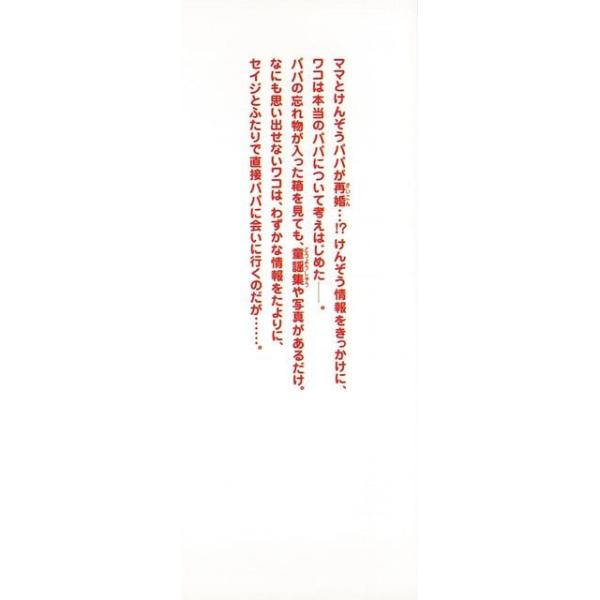 ママとけんぞうパパが再婚…!? けんぞう情報をきっかけに、
ワコは本当のパパについて考えはじめた――。
パパの忘れ物が入った箱を見ても、童謡集や写真があるだけ。
なにも思い出せないワコは、わずかな情報をたよりに、
セイジとふたりで直接パパに会いに行くのだが………。